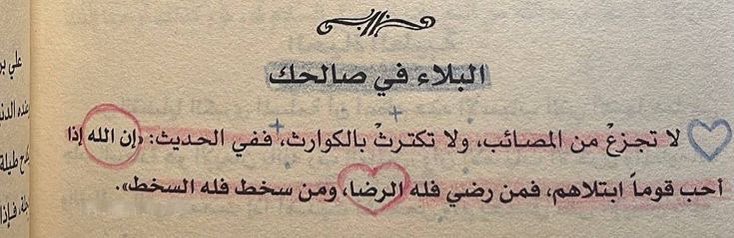 البلاء في صالحك
لا تجزعْ من المصائب، ولا تكترثْ بالكوارث، ففي الحديث: «إن الله إذا
أحب قوماً ابتلاهم، فمن رضي فله الرضا، ومن سخط فله السخط».